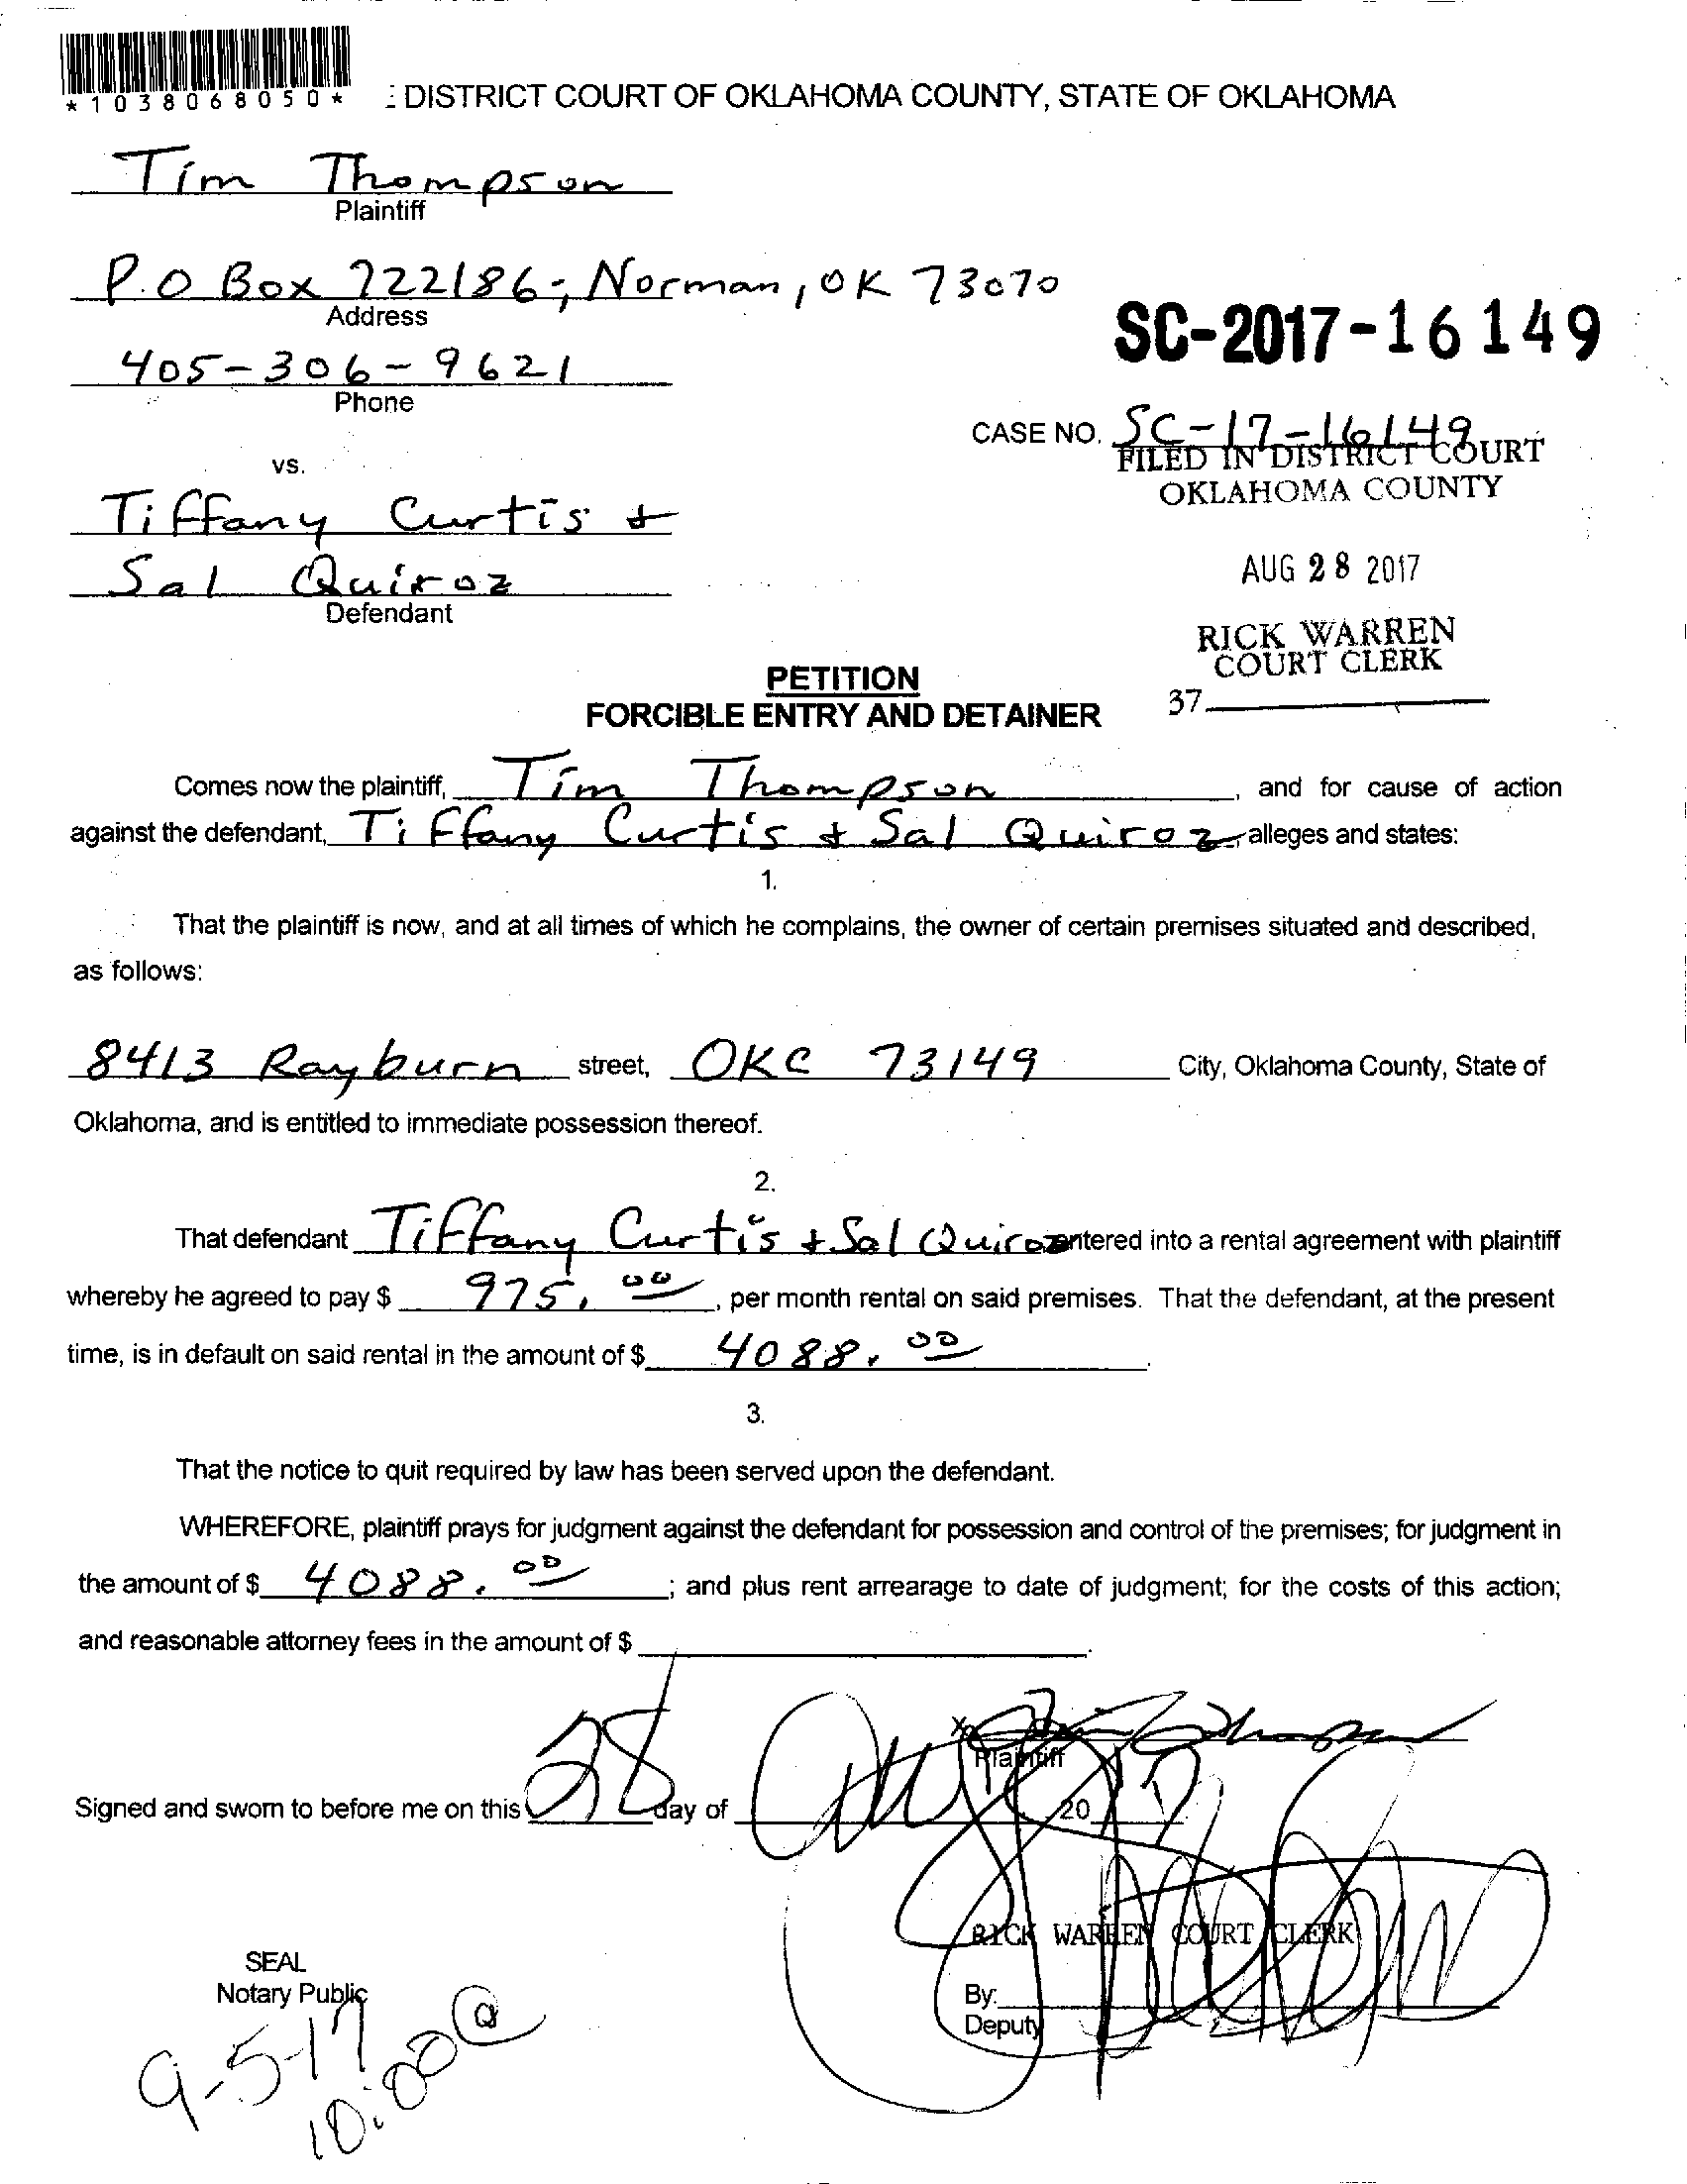 *1038068050*
: DISTRICT COURT OF OKLAHOMA COUNTY, STATE OF OKLAHOMA
Tim Thompson
Plaintiff
P.O Box 722186, Norman, OK 73070
Address
SC-2017-16149
405-306-9621
Phone
CASE NO. SC-17-16149
FILED IN DISTRICT COURT
vs.
OKLAHOMA COUNTY
Tiffany Curtis +
AUG 28 2017
Sal Quiroz
Defendant
RICK WARREN
COURT CLERK
PETITION
37
FORCIBLE ENTRY AND DETAINER
Comes now the plaintiff, Tim Thompson, and for cause of action
against the defendant, Tiffany Curtis + Sal Quiroz alleges and states:
1.
That the plaintiff is now, and at all times of which he complains, the owner of certain premises situated and described,
as follows:
8413 Rayburn street, OKC 73149 City, Oklahoma County, State of
Oklahoma, and is entitled to immediate possession thereof.
2.
That defendant Tiffany Curtis + Sal Quiroz entered into a rental agreement with plaintiff
whereby he agreed to pay $ 975.00, per month rental on said premises. That the defendant, at the present
time, is in default on said rental in the amount of $ 4088.00.
3.
That the notice to quit required by law has been served upon the defendant.
WHEREFORE, plaintiff prays for judgment against the defendant for possession and control of the premises; for judgment in
the amount of $ 4088.00; and plus rent arrearage to date of judgment; for the costs of this action;
and reasonable attorney fees in the amount of $ .
x Tim Thompson
Plaintiff
Signed and sworn to before me on this 28 day of Aug 20 17
RICK WARREN COURT CLERK
SEAL
Notary Public
By:
Deputy
9-5-17
10:00 @